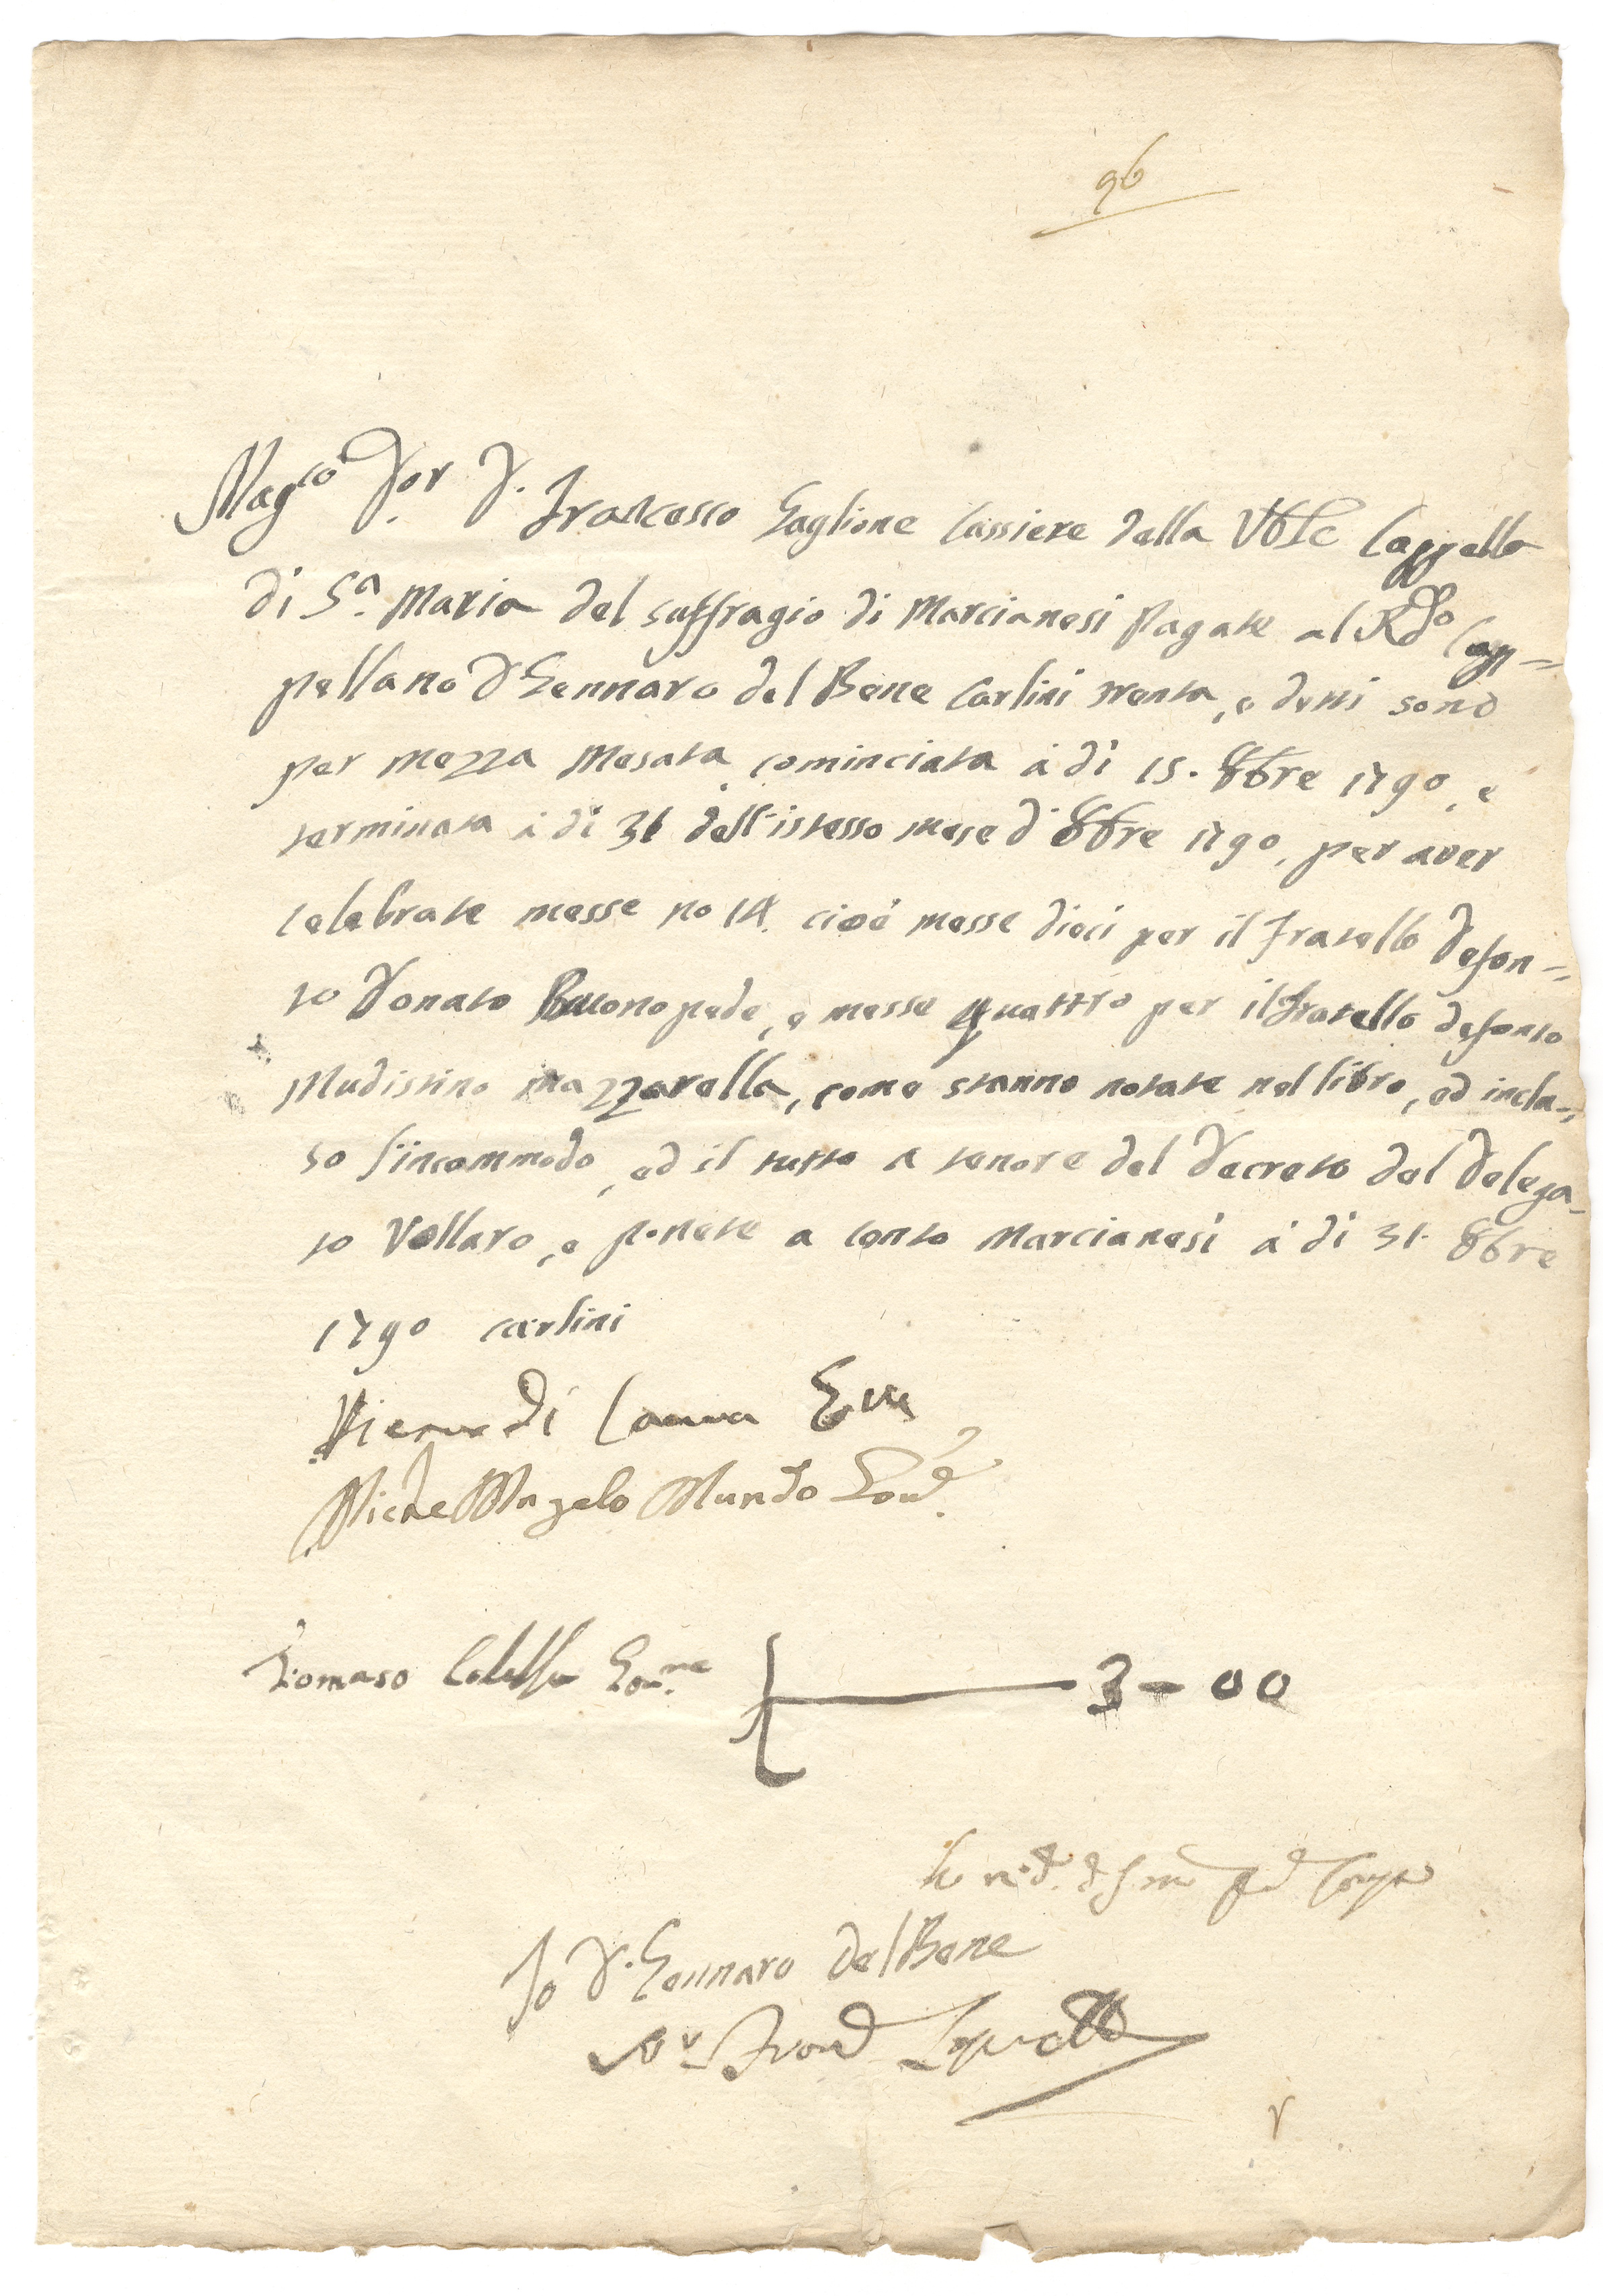 96
Mag.co D.or D. Francesco Gaglione Cassiere della Vble Cappella
di S.a Maria del suffragio di Marcianesi Pagate al R.do Cap=
pellano D Gennaro del Bene Carlini trenta, e detti sono
per mezza mesata cominciata à di 15. 8bre 1790, e
terminata à di 31 dell'istesso mese d'8bre 1790, per aver
celebrate messe no 14. cioè messe dieci per il Fratello defon=
to Donato Buonopede, e messe quattro per il Fratello defonto
Mudistino Mazzarella, come stanno notate nel libro, ed inclu=
so l'incommodo, ed il tutto a tenore del Decreto del Delega=
to Vollaro, e ponete a conto Marcianesi à di 31. 8bre
1790 carlini
di
Michel Angelo Mundo Gov.e
Tomaso Gov.re 3-00
Io D. Gennaro del Bene